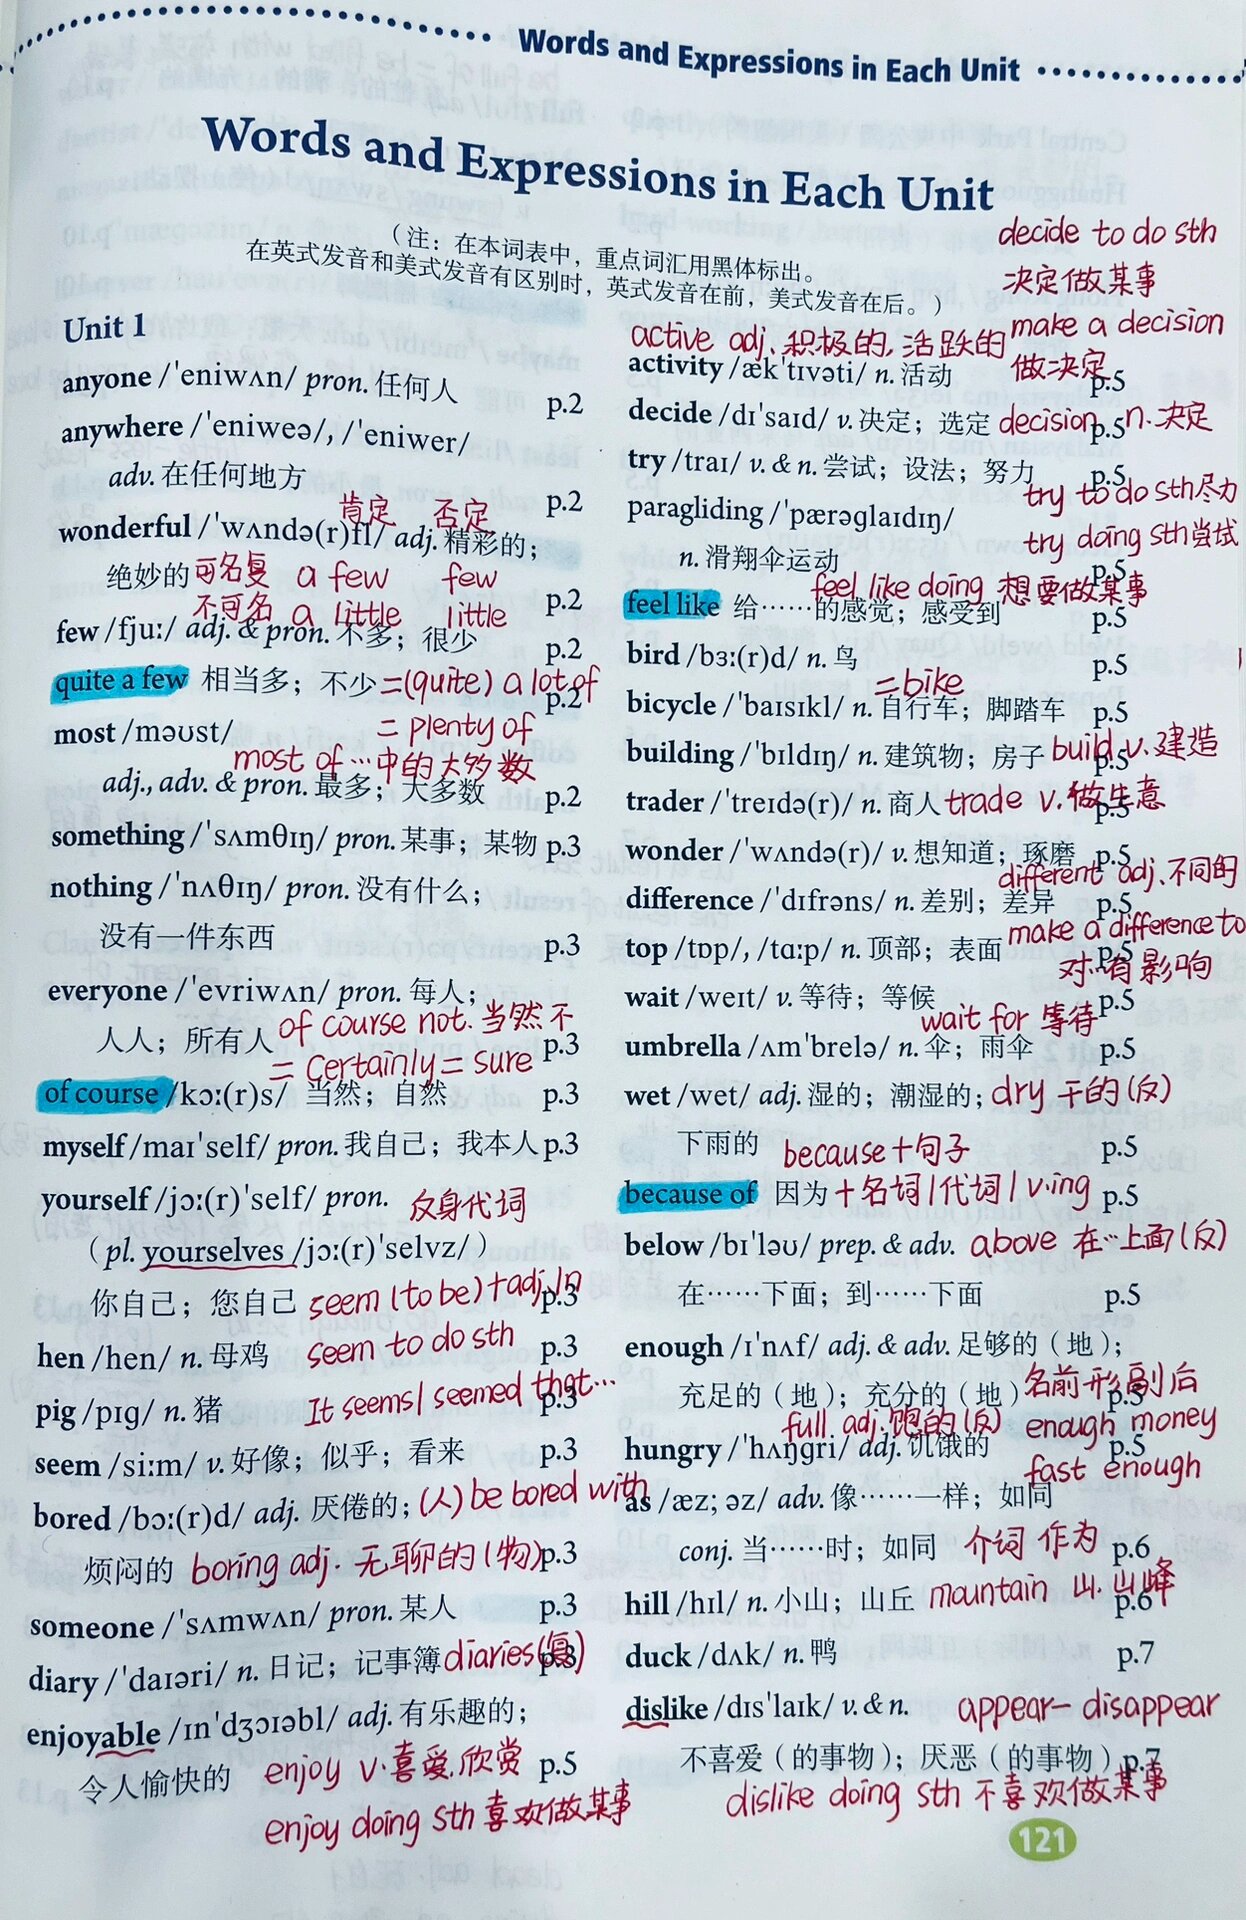 Words and Expressions in Each Unit
Words and Expressions in Each Unit
（注：在本词表中，重点词汇用黑体标出。
在英式发音和美式发音有区别时，英式发音在前，美式发音在后。）
Unit 1
anyone /ˈeniwʌn/ pron. 任何人 p.2
anywhere /ˈeniweə/, /ˈeniwer/
adv. 在任何地方 p.2
肯定 否定
wonderful /ˈwʌndə(r)fl/ adj. 精彩的；
绝妙的 p.2
可名复 a few few
不可名 a little little
few /fjuː/ adj. & pron. 不多；很少 p.2
quite a few 相当多；不少 p.2
=(quite) a lot of
= plenty of
most /məʊst/
most of …中的大多数
adj., adv. & pron. 最多；大多数 p.2
something /ˈsʌmθɪŋ/ pron. 某事；某物 p.3
nothing /ˈnʌθɪŋ/ pron. 没有什么；
没有一件东西 p.3
everyone /ˈevriwʌn/ pron. 每人；
人人；所有人 p.3
of course not. 当然不
= certainly = sure
of course /kɔː(r)s/ 当然；自然 p.3
myself /maɪˈself/ pron. 我自己；我本人 p.3
yourself /jɔː(r)ˈself/ pron. 反身代词
（pl. yourselves /jɔː(r)ˈselvz/）
你自己；您自己 p.3
seem (to be) + adj/n
hen /hen/ n. 母鸡 p.3
seem to do sth
pig /pɪɡ/ n. 猪 p.3
It seems/seemed that…
seem /siːm/ v. 好像；似乎；看来 p.3
bored /bɔː(r)d/ adj. 厌倦的； (人) be bored with
烦闷的 p.3
boring adj. 无聊的(物)
someone /ˈsʌmwʌn/ pron. 某人 p.3
diary /ˈdaɪəri/ n. 日记；记事簿 p.3
diaries(复)
enjoyable /ɪnˈdʒɔɪəbl/ adj. 有乐趣的；
令人愉快的 p.5
enjoy v. 喜爱, 欣赏
enjoy doing sth 喜欢做某事
decide to do sth
决定做某事
make a decision
做决定
active adj. 积极的, 活跃的
activity /ækˈtɪvəti/ n. 活动 p.5
decide /dɪˈsaɪd/ v. 决定；选定 p.5
decision n. 决定
try /traɪ/ v. & n. 尝试；设法；努力 p.5
try to do sth 尽力
try doing sth 尝试
paragliding /ˈpærəɡlaɪdɪŋ/
n. 滑翔伞运动 p.5
feel like doing 想要做某事
feel like 给……的感觉；感受到 p.5
bird /bɜː(r)d/ n. 鸟 p.5
=bike
bicycle /ˈbaɪsɪkl/ n. 自行车；脚踏车 p.5
building /ˈbɪldɪŋ/ n. 建筑物；房子 p.5
build v. 建造
trader /ˈtreɪdə(r)/ n. 商人 p.5
trade v. 做生意
wonder /ˈwʌndə(r)/ v. 想知道；琢磨 p.5
different adj. 不同的
difference /ˈdɪfrəns/ n. 差别；差异 p.5
make a difference to
对…有影响
top /tɒp/, /tɑːp/ n. 顶部；表面 p.5
wait /weɪt/ v. 等待；等候 p.5
wait for 等待
umbrella /ʌmˈbrelə/ n. 伞；雨伞 p.5
wet /wet/ adj. 湿的；潮湿的； dry 干的(反)
下雨的 p.5
because + 句子
because of 因为 +名词/代词/v·ing p.5
below /bɪˈləʊ/ prep. & adv. above 在…上面(反)
在……下面；到……下面 p.5
enough /ɪˈnʌf/ adj. & adv. 足够的（地）；
充足的（地）；充分的（地） p.5
名前形副后
enough money
fast enough
full adj. 饱的(反)
hungry /ˈhʌŋɡri/ adj. 饥饿的 p.5
as /æz; əz/ adv. 像……一样；如同
conj. 当……时；如同 p.6
介词 作为
hill /hɪl/ n. 小山；山丘 p.6
mountain 山, 山峰
duck /dʌk/ n. 鸭 p.7
dislike /dɪsˈlaɪk/ v. & n. appear—disappear
不喜爱（的事物）；厌恶（的事物） p.7
dislike doing sth 不喜欢做某事
121